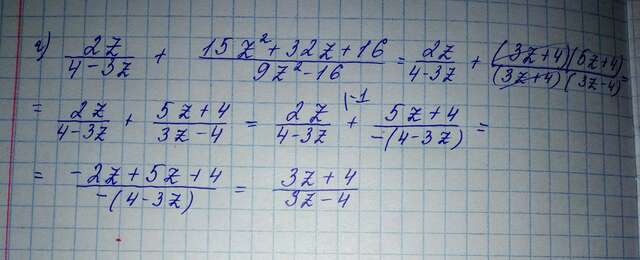 г) 2z/(4-3z) + (15z²+32z+16)/(9z²-16) = 2z/(4-3z) + ((3z+4)(5z+4))/((3z+4)(3z-4)) =
= 2z/(4-3z) + (5z+4)/(3z-4) = 2z/(4-3z) |-1 + (5z+4)/(-(4-3z)) =
= (-2z+5z+4)/(-(4-3z)) = (3z+4)/(3z-4)